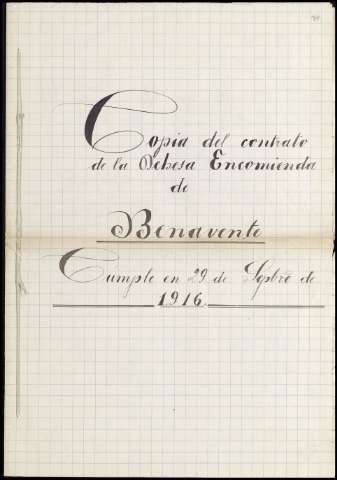 Copia del contrato
de la Dehesa Encomienda
de
Benavente
Cumple en 29 de Septre de
1916